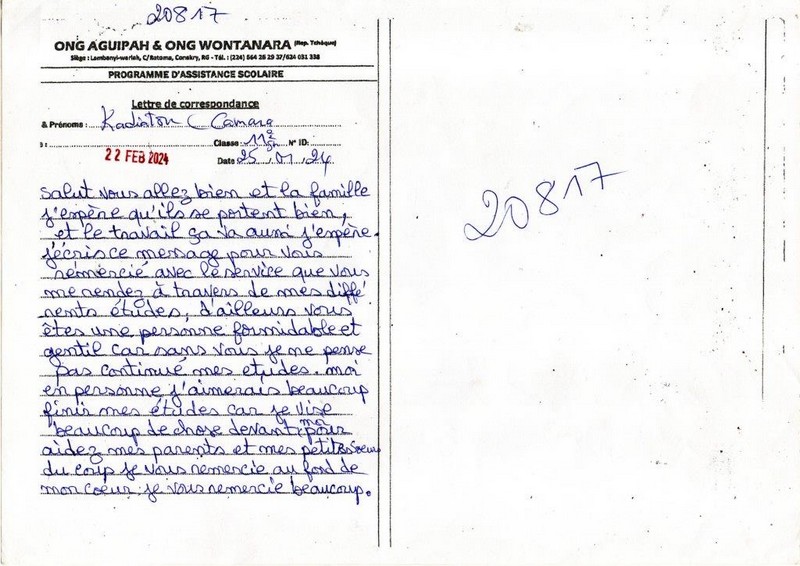 20817
ONG AGUIPAH & ONG WONTANARA (Rep. Tchèque)
Siège : Lambanyi-wariah, C/Ratoma, Conakry, RG - Tél. : (224) 664 26 29 37/624 031 338
PROGRAMME D'ASSISTANCE SCOLAIRE
Lettre de correspondance
& Prénoms : Kadiatou Camara
Classe : 11e N° ID:
22 FEB 2024
Date 25 01 24
salut vous allez bien et la famille
j'espère qu'ils se portent bien,
et le travail ça va aussi j'espère.
j'écris ce message pour vous
remercié avec le service que vous
me rendez à travers de mes diffé
rents études, d'ailleurs vous
êtes une personne formidable et
gentil car sans vous je ne pense
pas continué mes etudes. moi
en personne j'aimerais beaucoup
finir mes études car je vise
beaucoup de chose devant moi pour
aidez mes parents et mes petits soeurs
du coup je vous remercie au fond de
mon coeur. je vous remercie beaucoup.
20817